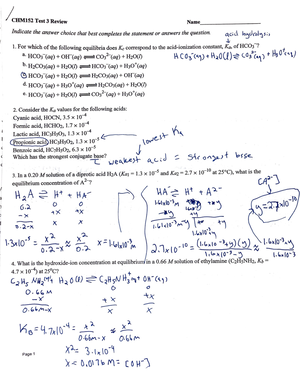 CHM152 Test 3 Review Name
Indicate the answer choice that best completes the statement or answers the question.
acid hydrolysis
1. For which of the following equilibria does Kc correspond to the acid-ionization constant, Ka, of HCO3⁻?
HCO3⁻(aq) + H2O(l) ⇌ CO3²⁻(aq) + H3O⁺(aq)
a. HCO3⁻(aq) + OH⁻(aq) ⇌ CO3²⁻(aq) + H2O(l)
b. H2CO3(aq) + H2O(l) ⇌ HCO3⁻(aq) + H3O⁺(aq)
c. HCO3⁻(aq) + H3O⁺(aq) ⇌ H2CO3(aq) + H2O(l)
d. HCO3⁻(aq) + H2O(l) ⇌ H2CO3(aq) + OH⁻(aq)
e. HCO3⁻(aq) + H2O(l) ⇌ CO3²⁻(aq) + H3O⁺(aq)
2. Consider the Ka values for the following acids:
Cyanic acid, HOCN, 3.5 × 10⁻⁴
Formic acid, HCHO2, 1.7 × 10⁻⁴
Lactic acid, HC3H5O3, 1.3 × 10⁻⁴
Propionic acid, HC3H5O2, 1.3 × 10⁻⁵
lowest Ka
Benzoic acid, HC7H5O2, 6.3 × 10⁻⁵
Which has the strongest conjugate base?
weakest acid = strongest base
3. In a 0.20 M solution of a diprotic acid H2A (Ka1 = 1.3 × 10⁻⁵ and Ka2 = 2.7 × 10⁻¹⁰ at 25°C), what is the
equilibrium concentration of A²⁻?
[A²⁻]
H2A ⇌ H⁺ + HA⁻
HA⁻ ⇌ H⁺ + A²⁻
0.2 0 0
-x +x +x
0.2-x x x
y = 2.7x10⁻¹⁰
1.3x10⁻⁵ = x²/0.2-x ≈ x²/0.2 x = 1.61x10⁻³M
2.7x10⁻¹⁰ = (1.6x10⁻³+y)(y)/1.6x10⁻³-y ≈ 1.6x10⁻³y/1.6x10⁻³
4. What is the hydroxide-ion concentration at equilibrium in a 0.66 M solution of ethylamine (C2H5NH2, Kb =
4.7 × 10⁻⁴) at 25°C?
C2H5NH2 + H2O(l) ⇌ C2H5NH3⁺(aq) + OH⁻(aq)
0.66M 0 0
-x +x +x
0.66M-x x x
KB = 4.7x10⁻⁴ = x²/0.66M-x ≈ x²/0.66M
x² = 3.1x10⁻⁴
x = 0.0176M = [OH⁻]
Page 1